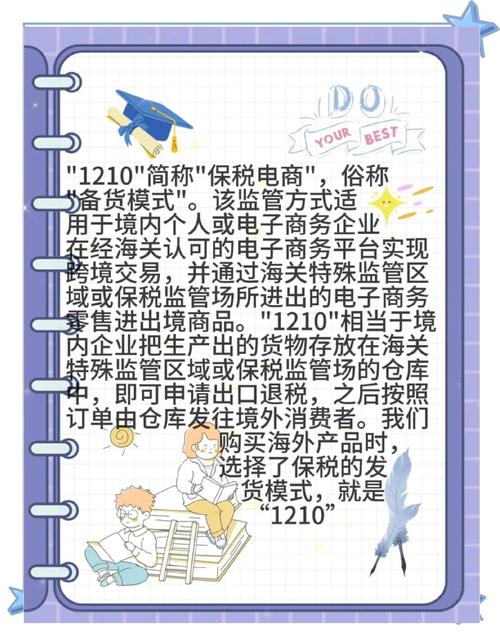 DO
YOUR BEST
"1210"简称"保税电商"，俗称
"备货模式"。该监管方式适
用于境内个人或电子商务企业
在经海关认可的电子商务平台实现
跨境交易，并通过海关特殊监管区
域或保税监管场所进出的电子商务
零售进出境商品。"1210"相当于境
内企业把生产出的货物存放在海关
特殊监管区域或保税监管场的仓库
中，即可申请出口退税，之后按照
订单由仓库发往境外消费者。我们
购买海外产品时，
选择了保税的发
货模式，就是
“1210”